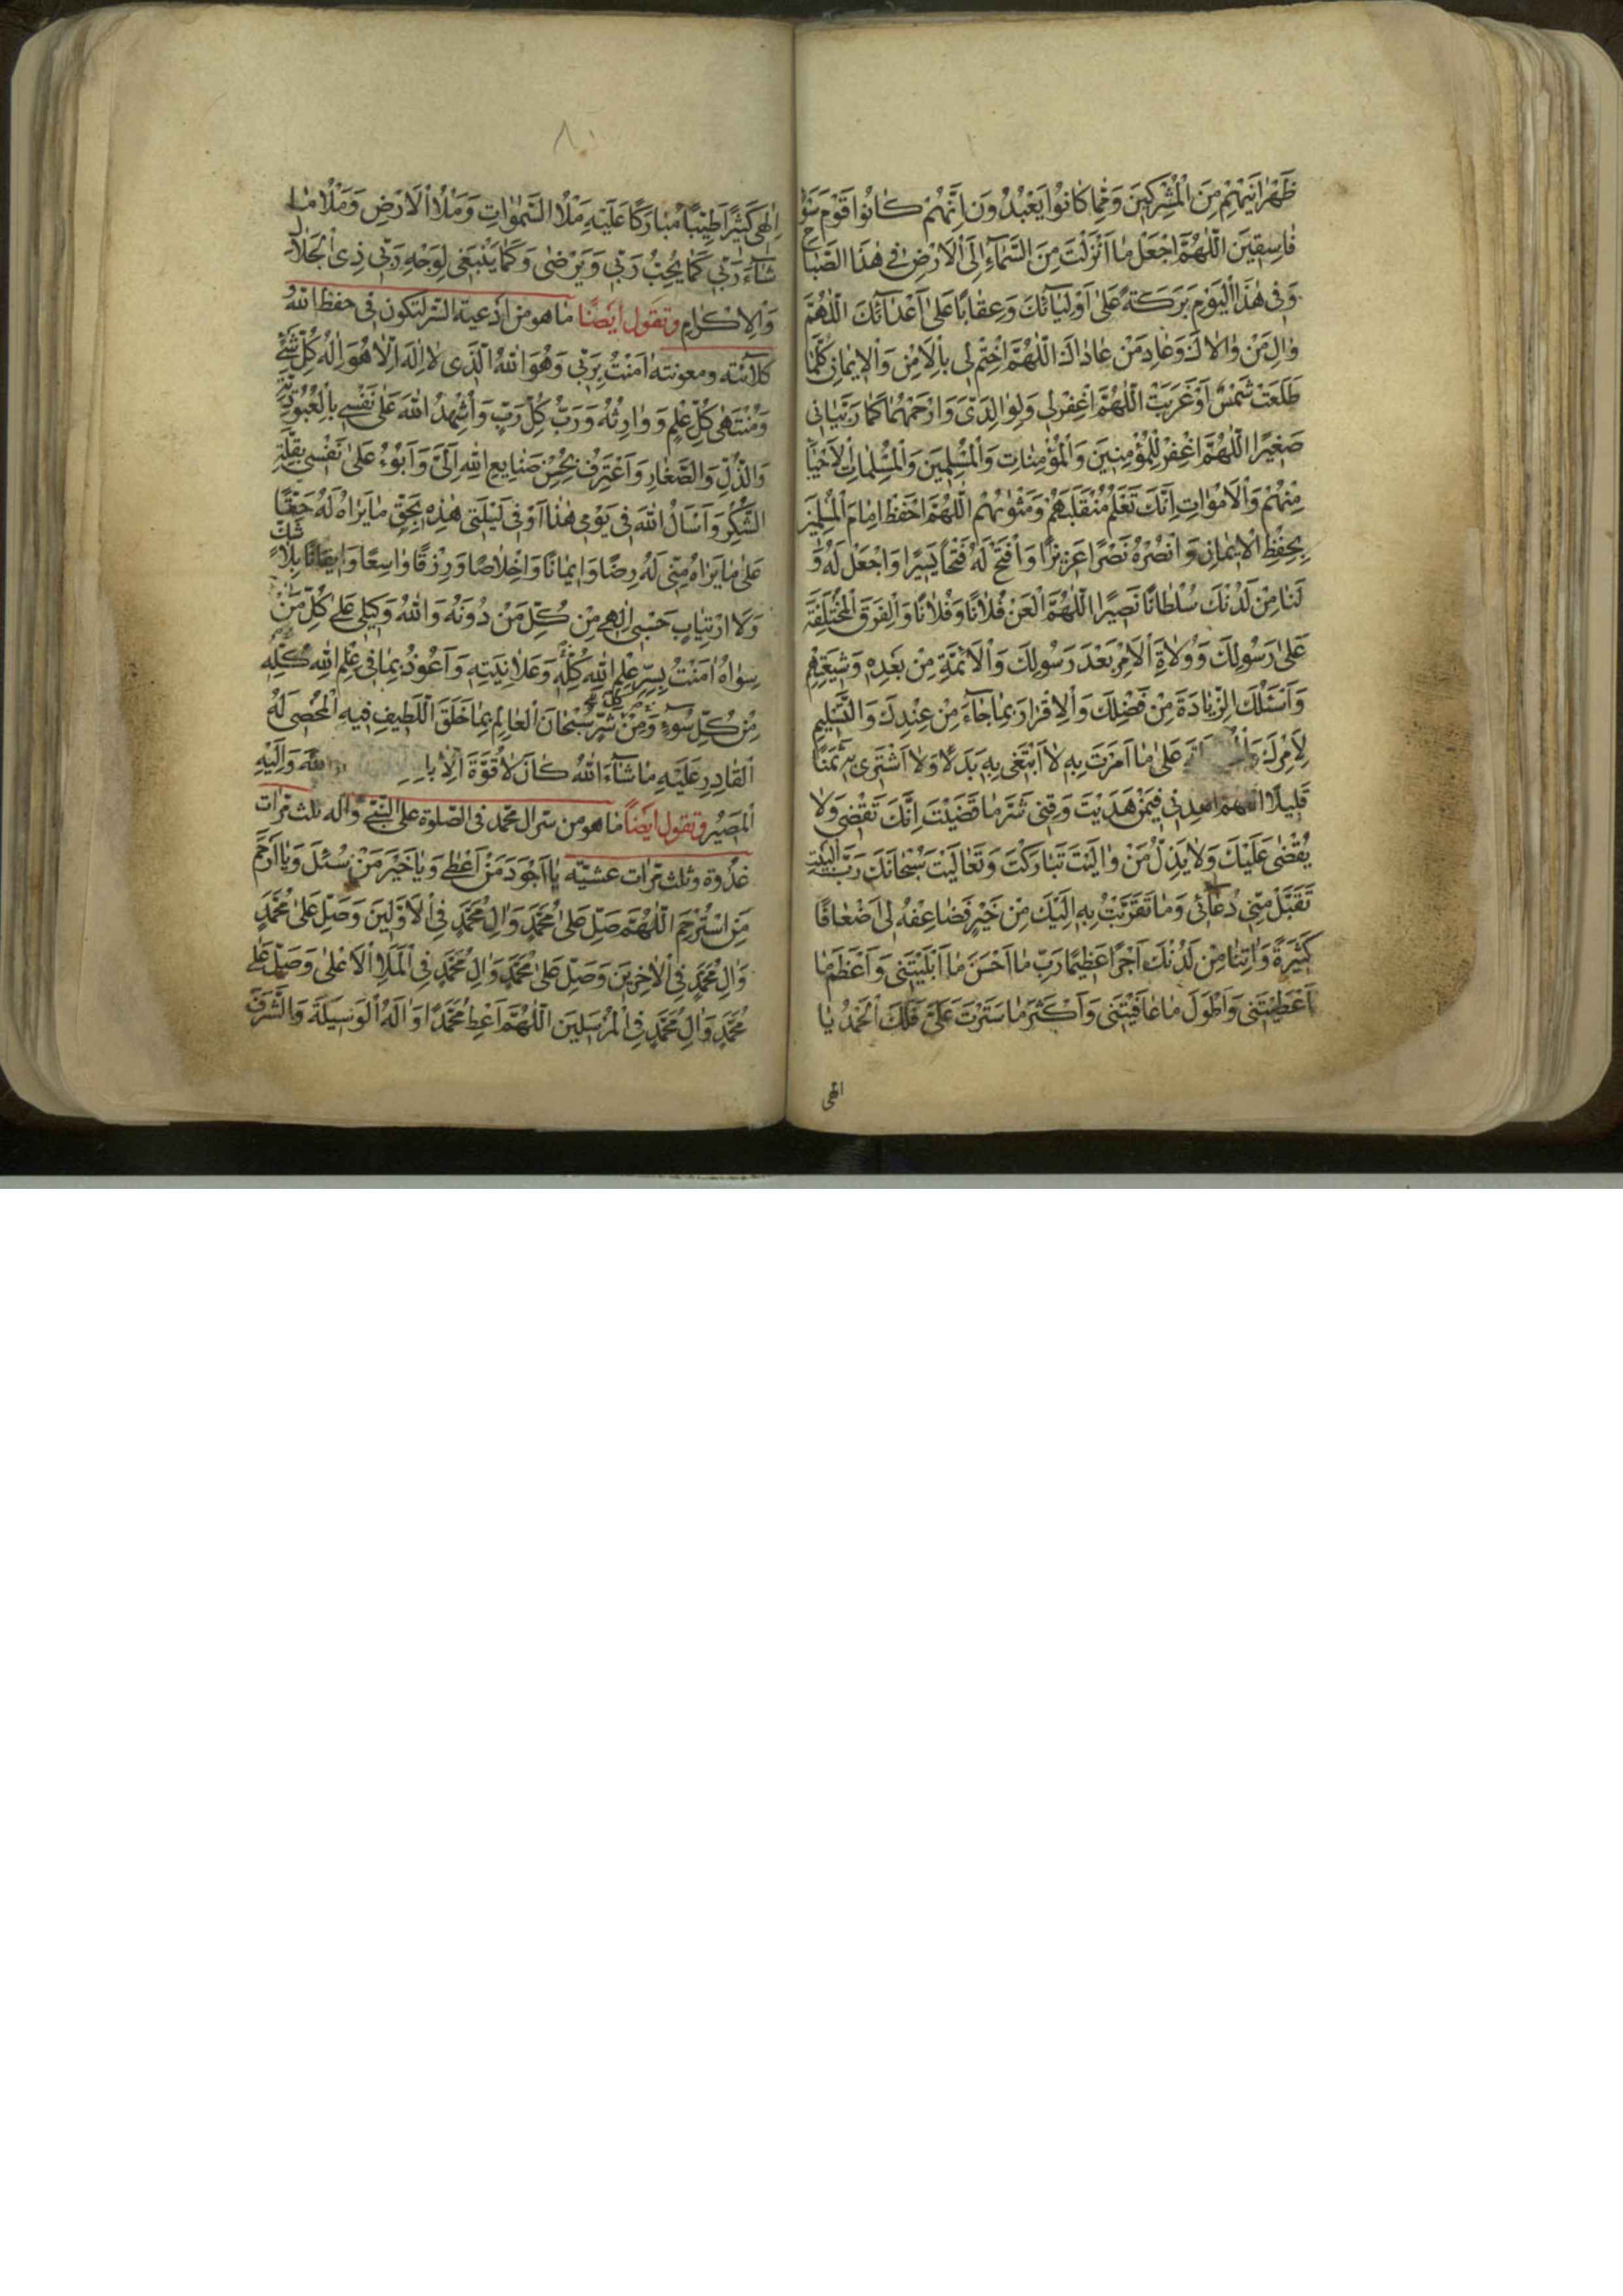 ظَهْرَانَيْهِمْ مِنَ الْمُشْرِكِينَ وَمِمَّا كَانُوا يَعْبُدُونَ اِنَّهُمْ كَانُوا قَوْمَ سَوْءٍ
فَاسِقِينَ اَللّٰهُمَّ اجْعَلْ مَا اَنْزَلْتَ مِنَ السَّمَاءِ اِلَى الْاَرْضِ فِي هٰذَا الصَّبَاحِ
وَفِي هٰذَا الْيَوْمِ بَرَكَةً عَلٰى اَوْلِيَائِكَ وَعِقَابًا عَلٰى اَعْدَائِكَ اَللّٰهُمَّ
وَالِ مَنْ وَالَاكَ وَعَادِ مَنْ عَادَاكَ اَللّٰهُمَّ اخْتِمْ لِي بِالْاَمْنِ وَالْاِيمَانِ كُلَّمَا
طَلَعَتْ شَمْسٌ اَوْ غَرَبَتْ اَللّٰهُمَّ اغْفِرْ لِي وَلِوَالِدَيَّ وَارْحَمْهُمَا كَمَا رَبَّيَانِي
صَغِيرًا اَللّٰهُمَّ اغْفِرْ لِلْمُؤْمِنِينَ وَالْمُؤْمِنَاتِ وَالْمُسْلِمِينَ وَالْمُسْلِمَاتِ الْاَحْيَاءِ
مِنْهُمْ وَالْاَمْوَاتِ اِنَّكَ تَعْلَمُ مُنْقَلَبَهُمْ وَمَثْوٰيهُمْ اَللّٰهُمَّ احْفَظْ اِمَامَ الْمُسْلِمِينَ
بِحِفْظِ الْاِيمَانِ وَانْصُرْهُ نَصْرًا عَزِيزًا وَافْتَحْ لَهُ فَتْحًا يَسِيرًا وَاجْعَلْ لَهُ وَ
لَنَا مِنْ لَدُنْكَ سُلْطَانًا نَصِيرًا اَللّٰهُمَّ الْعَنْ فُلَانًا وَفُلَانًا وَالْفِرَقَ الْمُخْتَلِفَةَ
عَلٰى رَسُولِكَ وَوُلَاةِ الْاَمْرِ بَعْدَ رَسُولِكَ وَالْاَئِمَّةِ مِنْ بَعْدِهِ وَشِيعَتِهِمْ
وَاَسْئَلُكَ الزِّيَادَةَ مِنْ فَضْلِكَ وَالْاِقْرَارَ بِمَا جَاءَ مِنْ عِنْدِكَ وَالتَّسْلِيمَ
لِاَمْرِكَ عَلٰى مَا اَمَرْتَ بِهِ لَا اَبْتَغِي بِهِ بَدَلًا وَلَا اَشْتَرِي بِهِ ثَمَنًا
قَلِيلًا اَللّٰهُمَّ اهْدِنِي فِيمَنْ هَدَيْتَ وَقِنِي شَرَّ مَا قَضَيْتَ اِنَّكَ تَقْضِي وَلَا
يُقْضٰى عَلَيْكَ وَلَا يَذِلُّ مَنْ وَالَيْتَ تَبَارَكْتَ وَتَعَالَيْتَ سُبْحَانَكَ رَبَّ الْبَيْتِ
تَقَبَّلْ مِنِّي دُعَائِي وَمَا تَقَرَّبْتُ بِهِ اِلَيْكَ مِنْ خَيْرٍ فَضَاعِفْهُ لِي اَضْعَافًا
كَثِيرَةً وَاٰتِنَا مِنْ لَدُنْكَ اَجْرًا عَظِيمًا رَبِّ مَا اَحْسَنَ مَا اَبْلَيْتَنِي وَاَعْظَمَ مَا
اَعْطَيْتَنِي وَاَطْوَلَ مَا عَافَيْتَنِي وَاَكْثَرَ مَا سَتَرْتَ عَلَيَّ فَلَكَ الْحَمْدُ يَا
الهى
٨٠
اِلٰهِي كَثِيرًا طَيِّبًا مُبَارَكًا عَلَيْهِ مِلْأَ السَّمٰوَاتِ وَمِلْأَ الْاَرْضِ وَمِلْأَ مَا
شَاءَ رَبِّي كَمَا يُحِبُّ رَبِّي وَيَرْضٰى وَكَمَا يَنْبَغِي لِوَجْهِ رَبِّي ذِي الْجَلَالِ
وَالْاِكْرَامِ وتقول ايضًا ما هو من ادعية السر لتكون في حفظ الله و
كلائته ومعونته اٰمَنْتُ بِرَبِّي وَهُوَ اللهُ الَّذِي لَا اِلٰهَ اِلَّا هُوَ اِلٰهُ كُلِّ شَيْءٍ
وَمُنْتَهٰى كُلِّ عِلْمٍ وَوَارِثُهُ وَرَبُّ كُلِّ رَبٍّ وَاُشْهِدُ اللهَ عَلٰى نَفْسِي بِالْعُبُودِيَّةِ
وَالذُّلِّ وَالصَّغَارِ وَاَعْتَرِفُ بِحُسْنِ صَنَايِعِ اللهِ اِلَيَّ وَاَبُوءُ عَلٰى نَفْسِي بِقِلَّةِ
الشُّكْرِ وَاَسْأَلُ اللهَ فِي يَوْمِي هٰذَا اَوْ فِي لَيْلَتِي هٰذِهِ بِحَقِّ مَا يَرَاهُ لَهُ حَقًّا
عَلٰى مَا يَرَاهُ مِنِّي لَهُ رِضًا وَاِيمَانًا وَاِخْلَاصًا وَرِزْقًا وَاسِعًا وَاِيقَانًا بِلَا شَكٍّ
وَلَا ارْتِيَابٍ حَسْبِي اِلٰهِي مِنْ كُلِّ مَنْ دُونَهُ وَاللهُ وَكِيلِي عَلٰى كُلِّ مَنْ
سِوَاهُ اٰمَنْتُ بِسِرِّ عِلْمِ اللهِ كُلِّهِ وَعَلَانِيَتِهِ وَاَعُوذُ بِمَا فِي عِلْمِ اللهِ كُلِّهِ
مِنْ كُلِّ سُوءٍ وَمِنْ شَرٍّ سُبْحَانَ الْعَالِمِ بِمَا خَلَقَ اللَّطِيفِ فِيهِ الْمُحْصِي لَهُ
الْقَادِرِ عَلَيْهِ مَا شَاءَ اللهُ كَانَ لَا قُوَّةَ اِلَّا وَاِلَيْهِ
الْمَصِيرُ وتقول ايضًا ما هو من سر ال محمد في الصلوة على النبي واله ثلث مرات
غدوة وثلث مرات عشية يَا اَجْوَدَ مَنْ اَعْطٰى وَيَا خَيْرَ مَنْ سُئِلَ وَيَا اَرْحَمَ
مَنِ اسْتُرْحِمَ اَللّٰهُمَّ صَلِّ عَلٰى مُحَمَّدٍ وَاٰلِ مُحَمَّدٍ فِي الْاَوَّلِينَ وَصَلِّ عَلٰى مُحَمَّدٍ
وَاٰلِ مُحَمَّدٍ فِي الْاٰخِرِينَ وَصَلِّ عَلٰى مُحَمَّدٍ وَاٰلِ مُحَمَّدٍ فِي الْمَلَإِ الْاَعْلٰى وَصَلِّ عَلٰى
مُحَمَّدٍ وَاٰلِ مُحَمَّدٍ فِي الْمُرْسَلِينَ اَللّٰهُمَّ اَعْطِ مُحَمَّدًا وَاٰلَهُ الْوَسِيلَةَ وَالشَّرَفَ